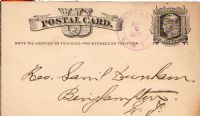 POSTAL CARD.
WRITE THE ADDRESS ON THIS SIDE - THE MESSAGE ON THE OTHER
Rev. Sam'l Dunham,
Binghamton,
N. Y.